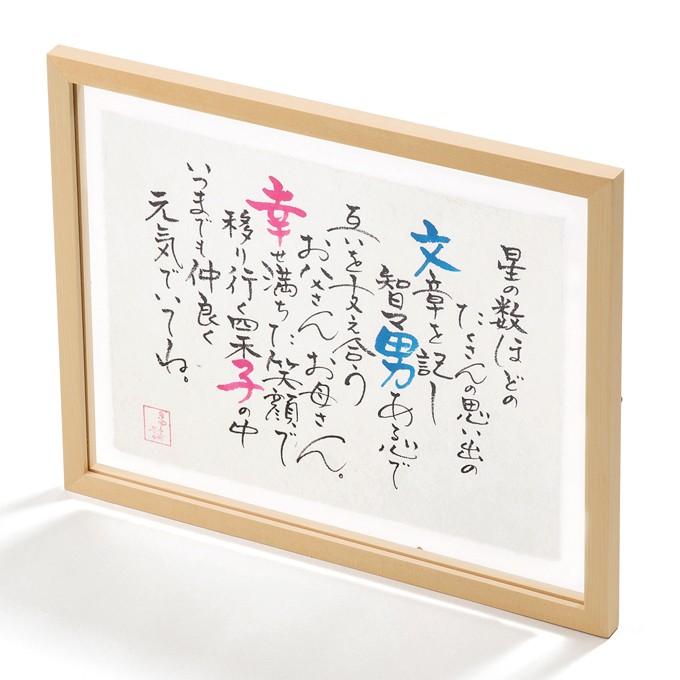 星の数ほどの
たくさんの思い出の
文章を記し
智勇ある心で
互いを支え合う
お父さん、お母さん。
幸せ満ちた笑顔で
移り行く四季の中
いつまでも仲良く
元気でいてね。